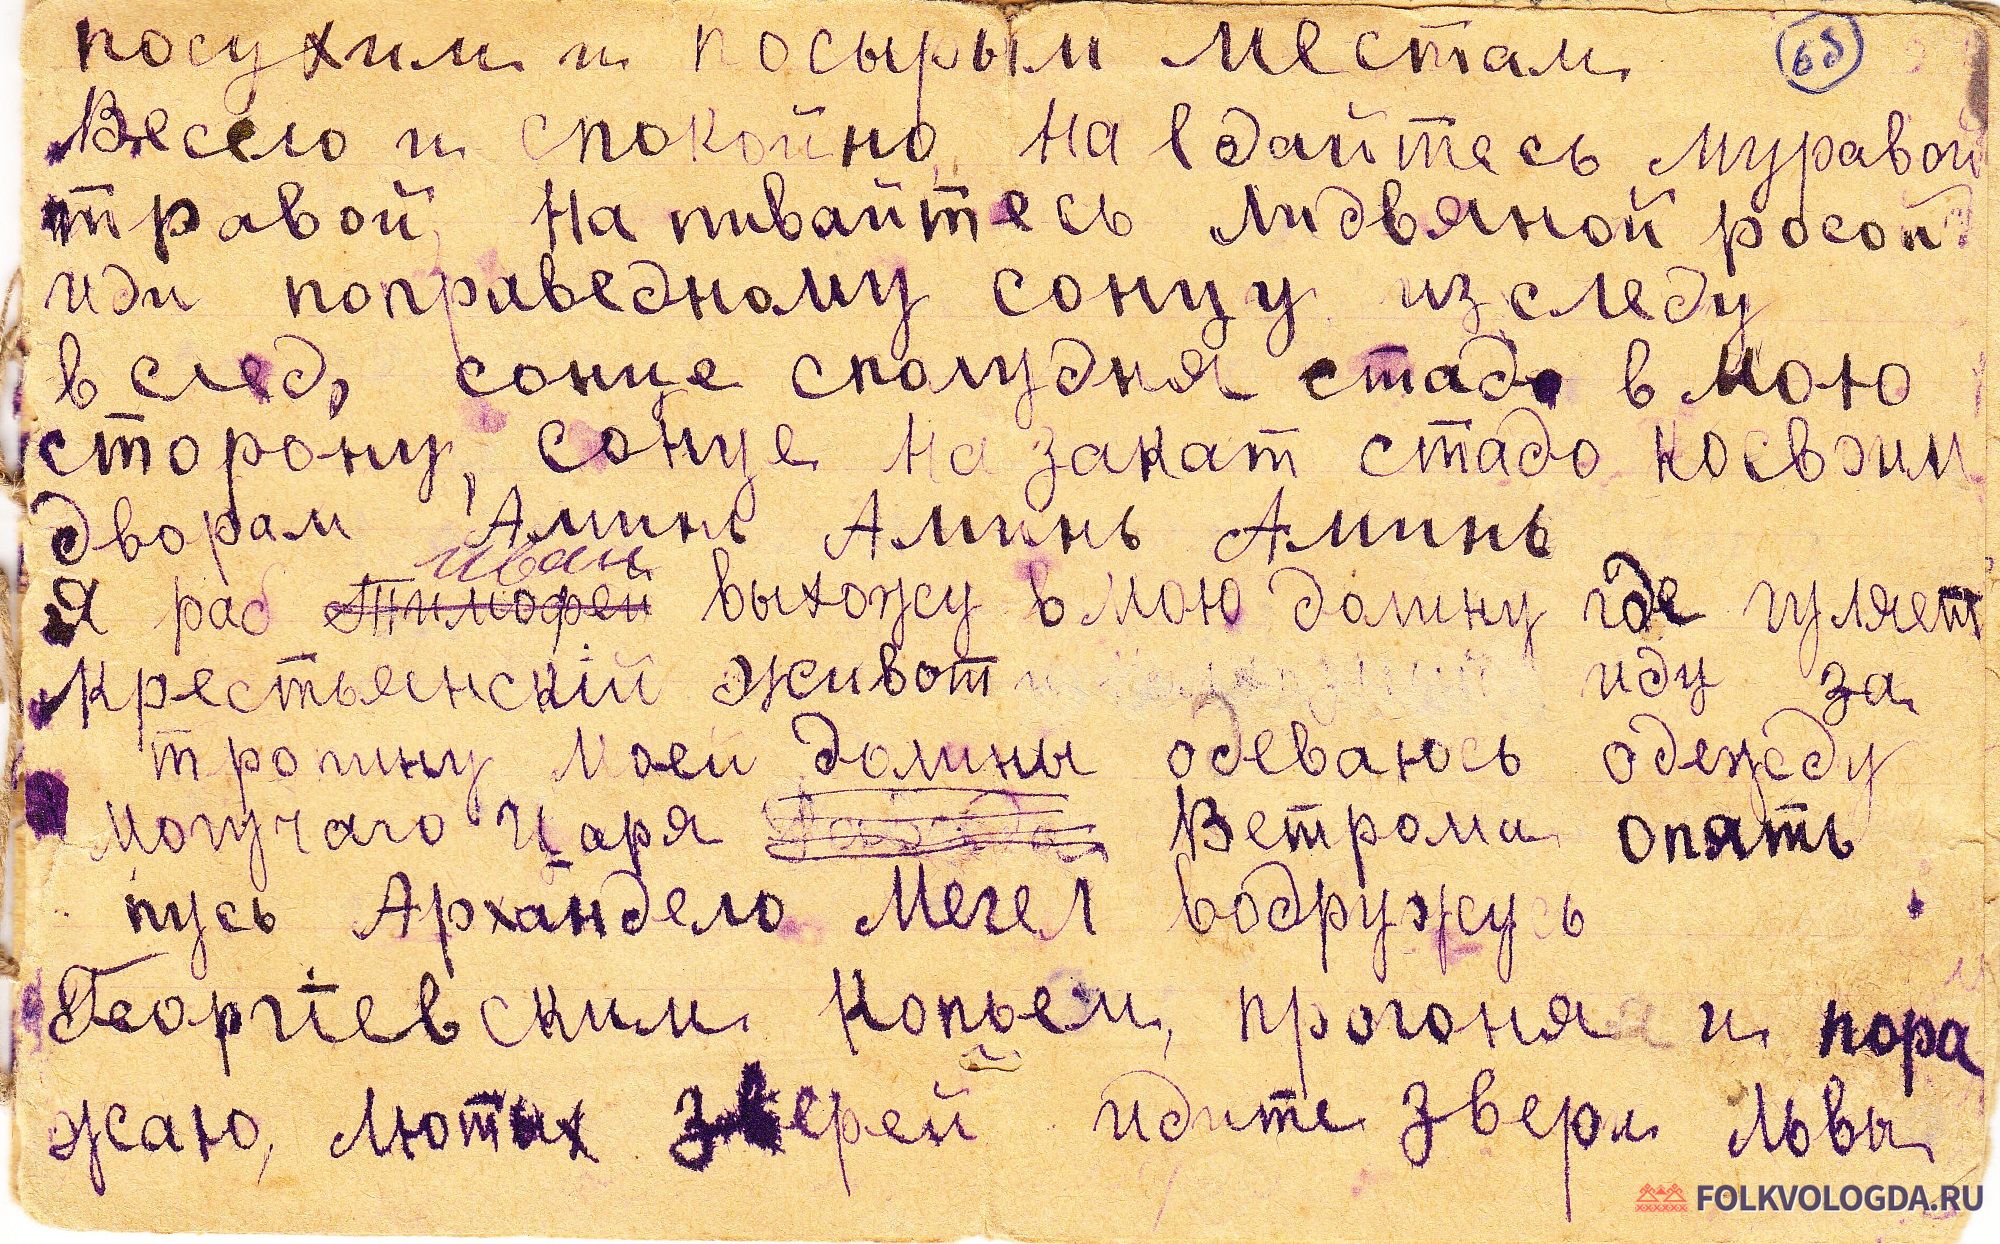 посухим и посырым местам 6б
Весело и спокойно, На едайтесь муравой
травой, На пивайтесь Лидвяной росой
иди поправедному сонцу изследу
в след, сонце сполудня стадо в мою
сторону, сонце На закат стадо косвэим
дворам Аминь Аминь Аминь
Иван
Я раб Тимофей выхожу в мою долину где гуляет
Крестьянскiй живот иду за
тропину моей долины одеваюсь одежду
могучаго Царя Ветрами опять
пусь Архандело Мегел водружусь
Георгiевским Копьем, прогоня и пора
жаю, Лютых зверей идите звери Львы
FOLKVOLOGDA.RU